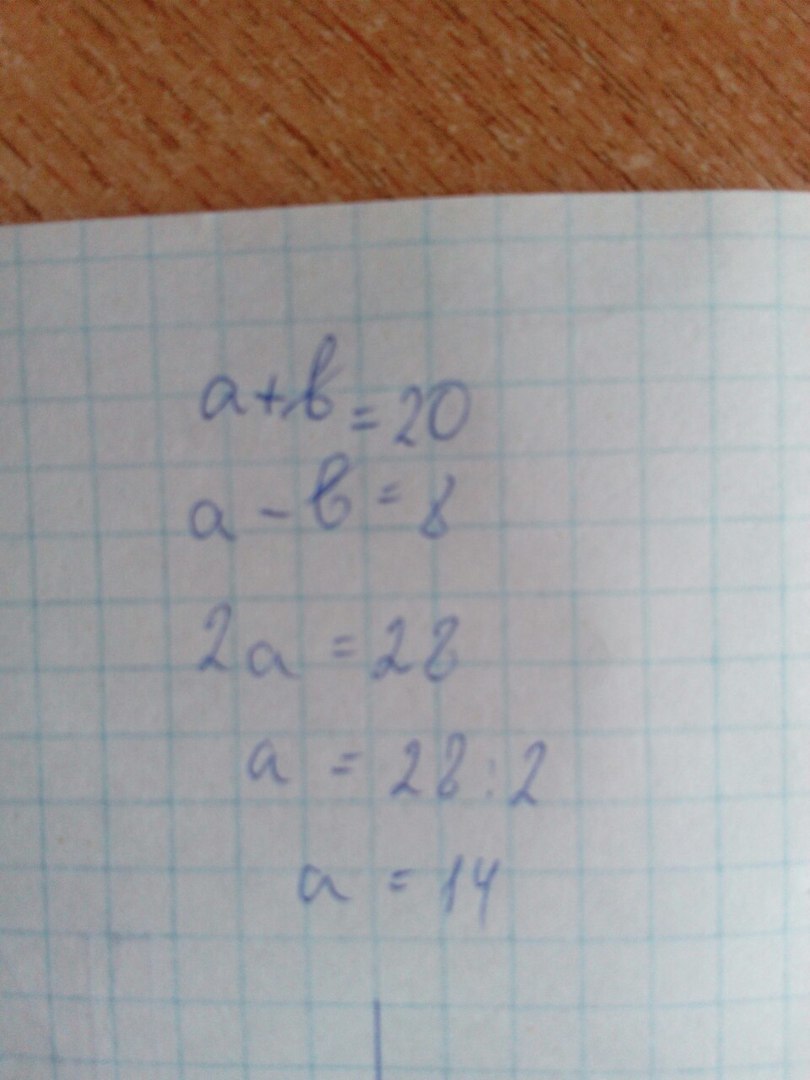 a+b=20
a-b=8
2a=28
a=28:2
a=14